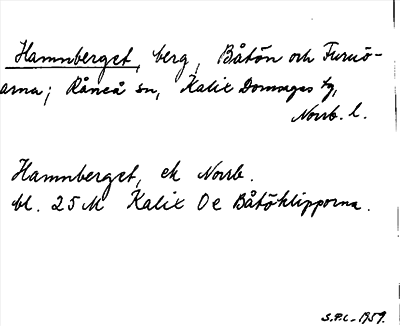 Hamnberget, berg, Båtön och Furuö-
arna; Råneå sn, Kalix Domsagas tg,
Norrb. l.
Hamnberget, ek Norrb.
bl. 25 M Kalix Oe Båtöklipporna.
S.P.L. 1959.